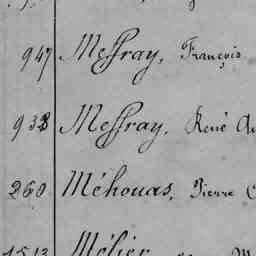 947 Messray, François
938 Messray, René
260 Méhouas, Pierre
1513 Mélier